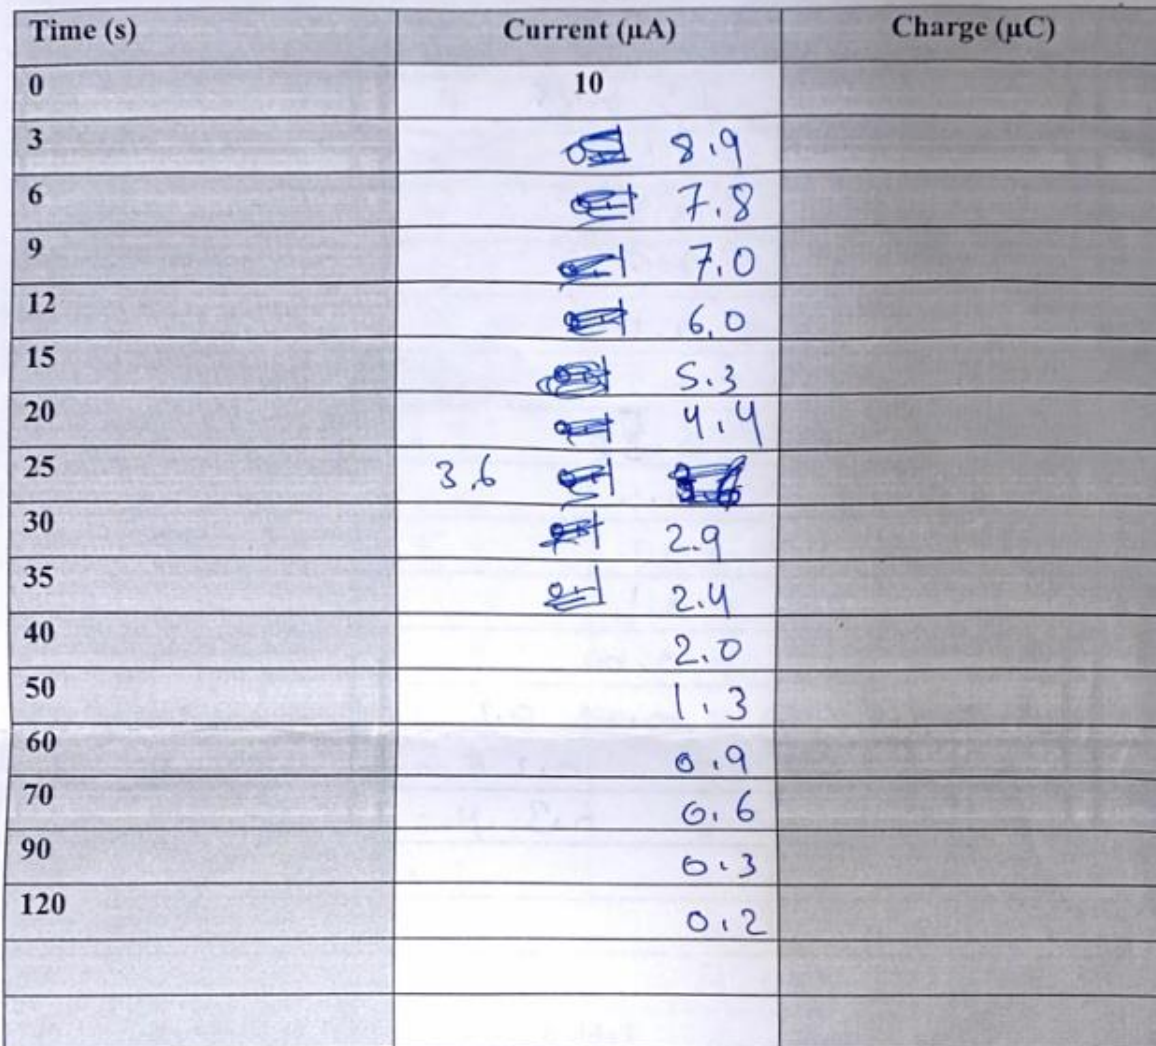 Time (s) Current (μA) Charge (μC)
0 10
3 8.9
6 7.8
9 7.0
12 6.0
15 5.3
20 4.4
25 3.6
30 2.9
35 2.4
40 2.0
50 1.3
60 0.9
70 0.6
90 0.3
120 0.2